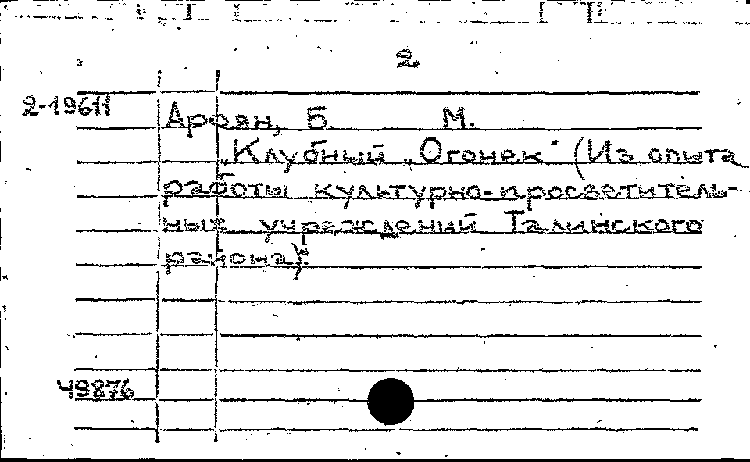 2
2-19611
Ароян, Б. М.
„Клубный „Огонек“ (Из опыта
работы культурно-просветитель-
ных учреждений Талинского
района)“
49876